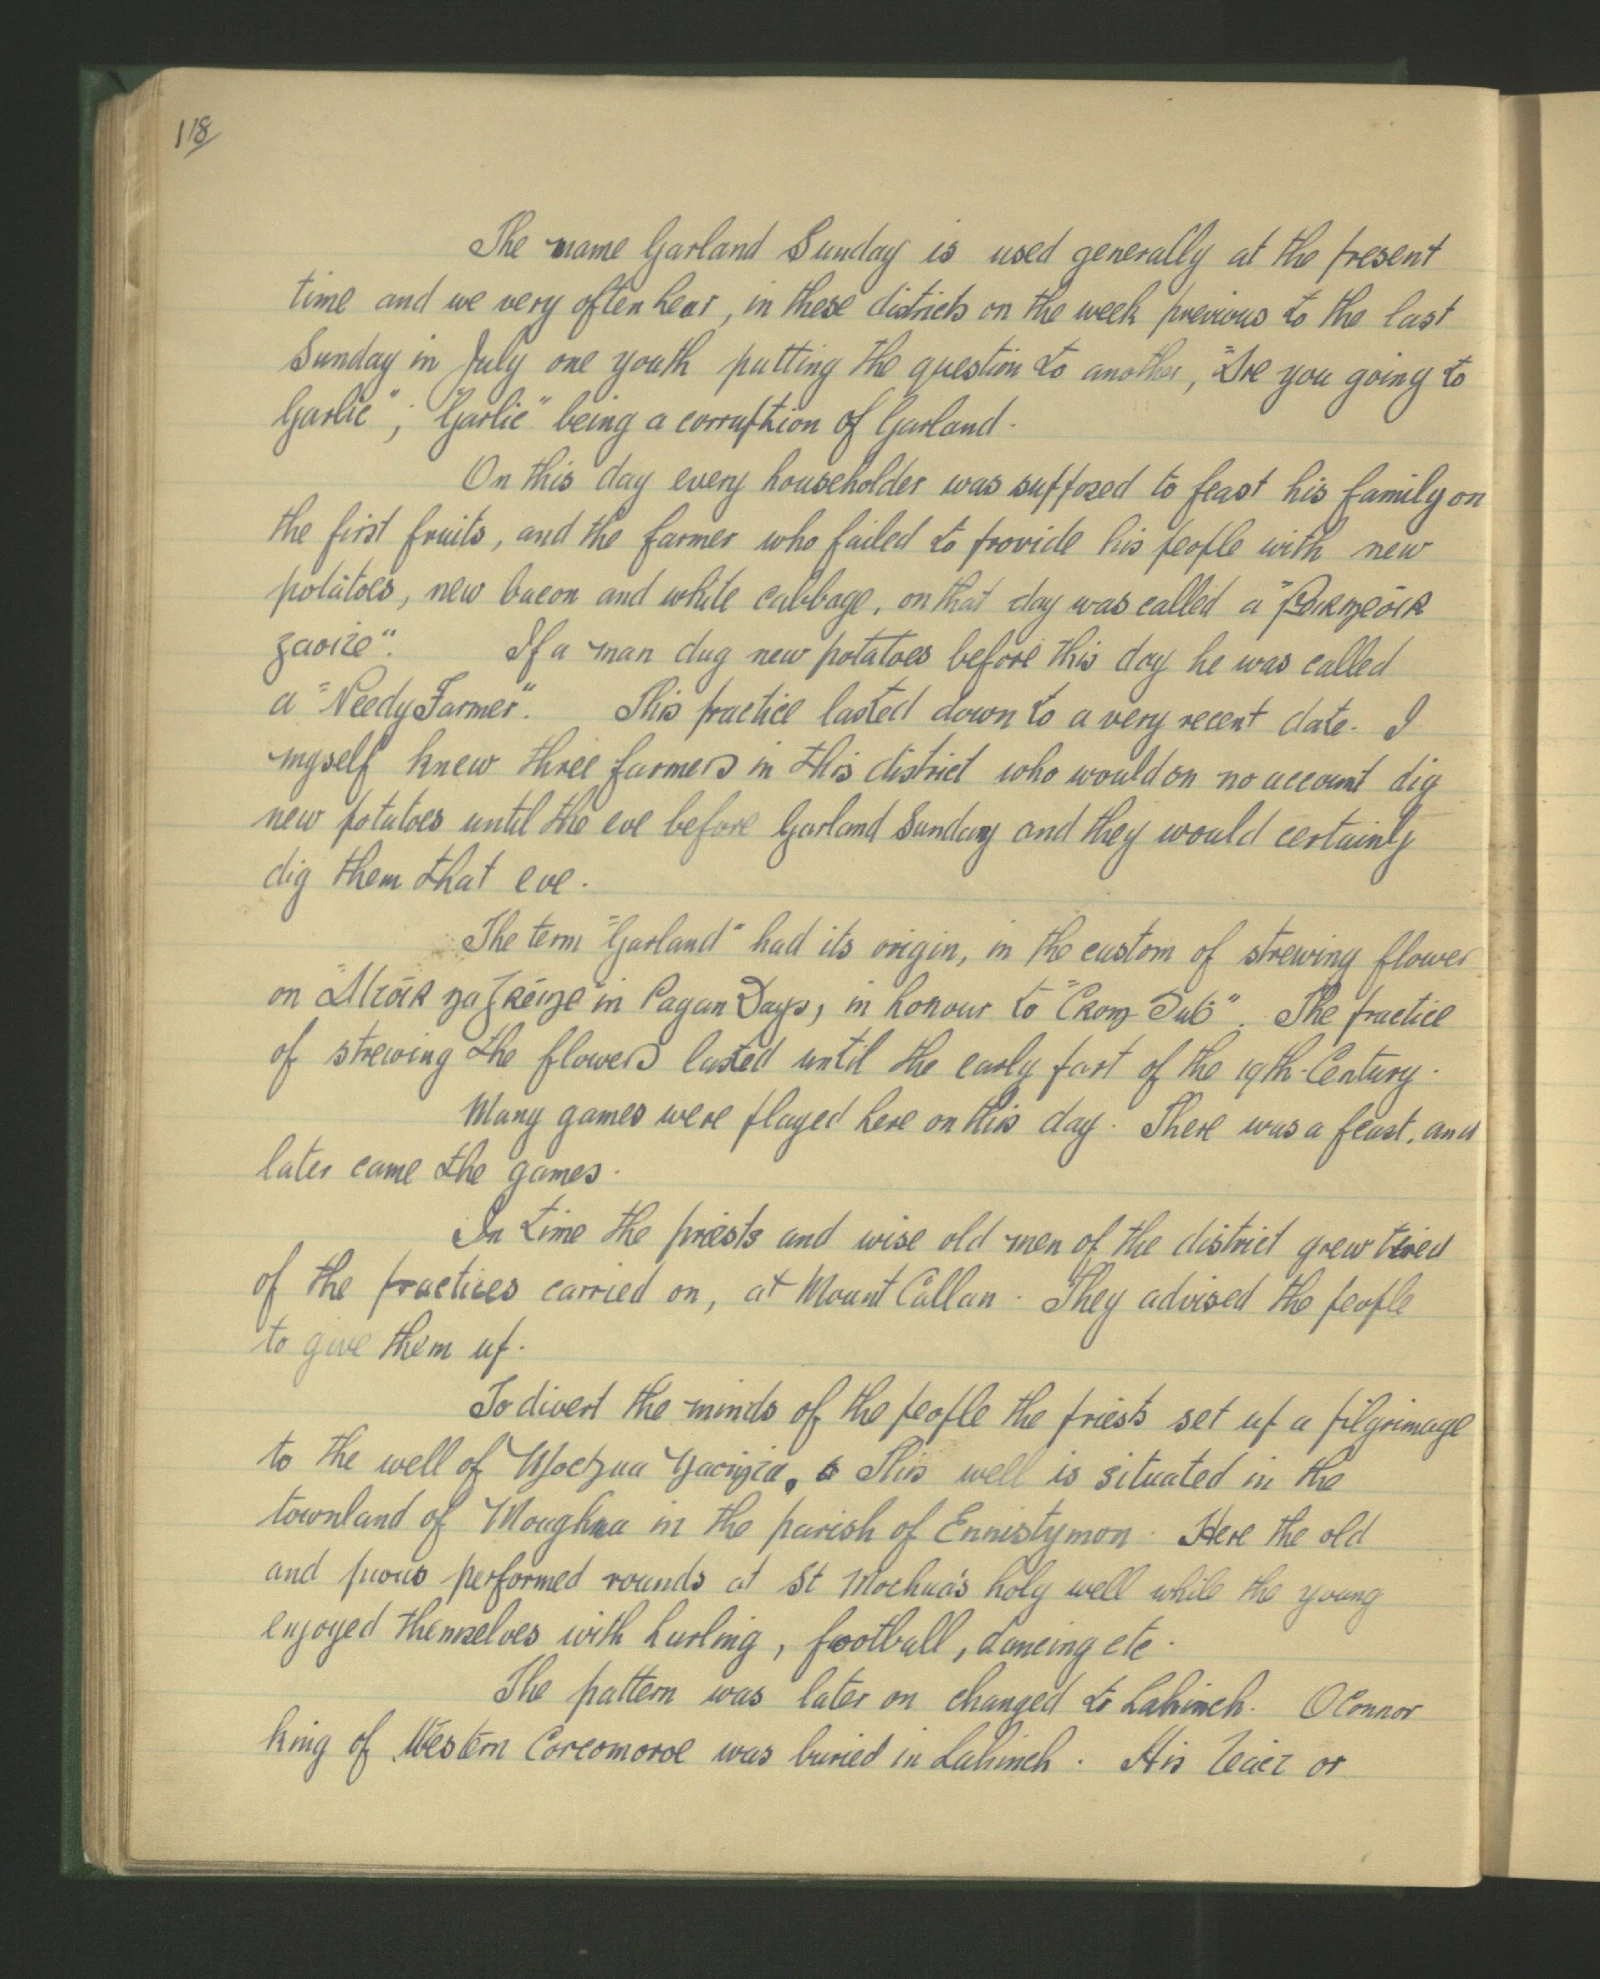 118
The name Garland Sunday is used generally at the present
time and we very often hear, in these districts on the week previous to the last
Sunday in July one youth putting the question to another, "Are you going to
Garlic", "Garlic" being a corruption of Garland.
On this day every householder was supposed to feast his family on
the first fruits, and the farmer who failed to provide his people with new
potatoes, new bacon and white cabbage, on that day was called a "Feirmeóir
gaoithe". If a man dug new potatoes before this day he was called
a "Needy Farmer". This practice lasted down to a very recent date. I
myself knew three farmers in this district who would on no account dig
new potatoes until the eve before Garland Sunday and they would certainly
dig them that eve.
The term "Garland" had its origin, in the custom of strewing flowers
on "Altóir na Gréine" in Pagan Days, in honour to "Crom Dub". The practice
of strewing the flowers lasted until the early part of the 19th Century.
Many games were played here on this day. There was a feast, and
later came the games.
In time the priests and wise old men of the district grew tired
of the practices carried on, at Mount Callan. They advised the people
to give them up.
To divert the minds of the people the priests set up a pilgrimage
to the well of Mochua Naomhtha. This well is situated in the
townland of Moughna in the parish of Ennistymon. Here the old
and pious performed rounds at St Mochua's holy well while the young
enjoyed themselves with hurling, football, dancing etc.
The pattern was later on changed to Lahinch. O'Connor
king of Western Corcomoroe was buried in Lahinch. His leact or